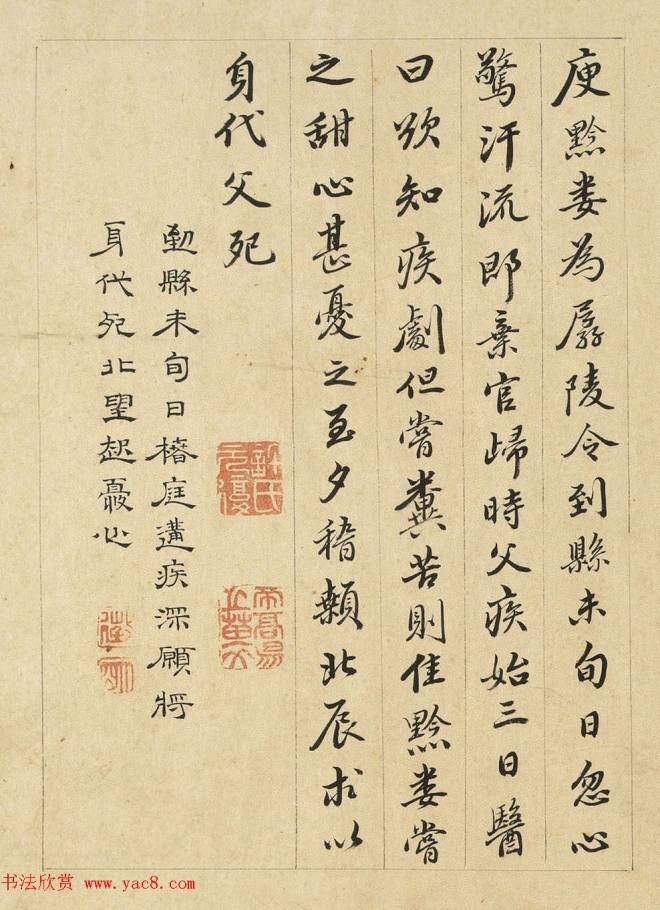 庾黔婁為孱陵令到縣未旬日忽心
驚汗流即棄官歸時父疾始三日醫
曰欲知疾劇但嘗糞苦則佳黔婁嘗
之甜心甚憂之至夕稽顙北辰求以
身代父死
到縣未旬日椿庭遘疾深願將
身代死北望起憂心
书法欣赏 www.yac8.com